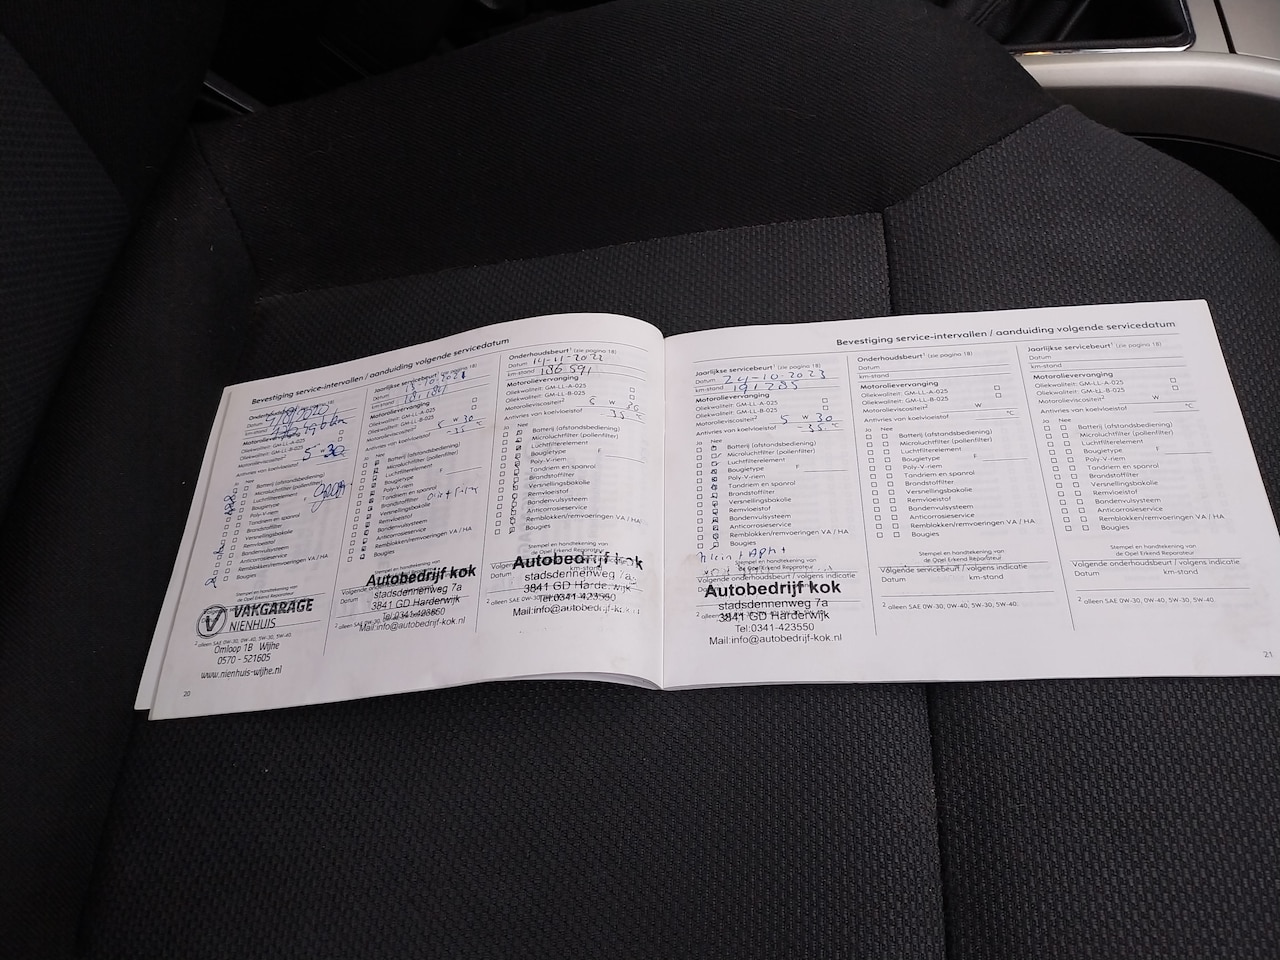 Bevestiging service-intervallen / aanduiding volgende servicedatum
Onderhoudsbeurt¹ (zie pagina 18)
Datum
km-stand
Motorolieverversing
Oliekwaliteit: GM-LL-A-025
Oliekwaliteit: GM-LL-B-025
Motorolieviscositeit² 5 w 30
Antivries van koelvloeistof
Ja Nee
Batterij (afstandsbediening)
Microluchtfilter (pollenfilter)
Luchtfilterelement
Bougietype
Poly-V-riem
Tandriem en spanrol
Brandstoffilter
Versnellingsbakolie
Remvloeistof
Bandenvulsysteem
Anticorrosieservice
Remblokken/remvoeringen VA / HA
Bougies
Stempel en handtekening van
de Opel Erkend Reparateur
VAKGARAGE
NIENHUIS
² alleen SAE 0W-30, 0W-40, 5W-30, 5W-40.
Omloop 1B Wijhe
0570 - 521605
www.nienhuis-wijhe.nl
20
Jaarlijkse servicebeurt¹ (zie pagina 18)
Datum 13-10-2021
km-stand
Motorolieverversing
Oliekwaliteit: GM-LL-A-025
Oliekwaliteit: GM-LL-B-025
Motorolieviscositeit² 5 w 30
Antivries van koelvloeistof -35 °C
Ja Nee
Batterij (afstandsbediening)
Microluchtfilter (pollenfilter)
Luchtfilterelement
Bougietype
Poly-V-riem
Tandriem en spanrol
Brandstoffilter
Versnellingsbakolie
Remvloeistof
Bandenvulsysteem
Anticorrosieservice
Remblokken/remvoeringen VA / HA
Bougies
Autobedrijf kok
stadsdennenweg 7a
3841 GD Harderwijk
Tel:0341-423550
Mail:info@autobedrijf-kok.nl
Onderhoudsbeurt¹ (zie pagina 18)
Datum 14-11-2022
km-stand 186.591
Motorolieverversing
Oliekwaliteit: GM-LL-A-025
Oliekwaliteit: GM-LL-B-025
Motorolieviscositeit² w
Antivries van koelvloeistof -35 °C
Ja Nee
Batterij (afstandsbediening)
Microluchtfilter (pollenfilter)
Luchtfilterelement
Bougietype F
Poly-V-riem
Tandriem en spanrol
Brandstoffilter
Versnellingsbakolie
Remvloeistof
Bandenvulsysteem
Anticorrosieservice
Remblokken/remvoeringen VA / HA
Bougies
Autobedrijf kok
stadsdennenweg 7a
3841 GD Harderwijk
Tel:0341-423550
Mail:info@autobedrijf-kok.nl
Bevestiging service-intervallen / aanduiding volgende servicedatum
Jaarlijkse servicebeurt¹ (zie pagina 18)
Datum 24-10-2023
km-stand 191.285
Motorolieverversing
Oliekwaliteit: GM-LL-A-025
Oliekwaliteit: GM-LL-B-025
Motorolieviscositeit² 5 w 30
Antivries van koelvloeistof -35 °C
Ja Nee
Batterij (afstandsbediening)
Microluchtfilter (pollenfilter)
Luchtfilterelement
Bougietype F
Poly-V-riem
Tandriem en spanrol
Brandstoffilter
Versnellingsbakolie
Remvloeistof
Bandenvulsysteem
Anticorrosieservice
Remblokken/remvoeringen VA / HA
Bougies
Volgende onderhoudsbeurt / volgens indicatie
Autobedrijf kok
stadsdennenweg 7a
3841 GD Harderwijk
Tel:0341-423550
Mail:info@autobedrijf-kok.nl
Onderhoudsbeurt¹ (zie pagina 18)
Datum
km-stand
Motorolieverversing
Oliekwaliteit: GM-LL-A-025
Oliekwaliteit: GM-LL-B-025
Motorolieviscositeit² W
Antivries van koelvloeistof °C
Ja Nee
Batterij (afstandsbediening)
Microluchtfilter (pollenfilter)
Luchtfilterelement
Bougietype F
Poly-V-riem
Tandriem en spanrol
Brandstoffilter
Versnellingsbakolie
Remvloeistof
Bandenvulsysteem
Anticorrosieservice
Remblokken/remvoeringen VA / HA
Bougies
Stempel en handtekening van
de Opel Erkend Reparateur
Volgende servicebeurt / volgens indicatie
Datum km-stand
² alleen SAE 0W-30, 0W-40, 5W-30, 5W-40.
Jaarlijkse servicebeurt¹ (zie pagina 18)
Datum
km-stand
Motorolieverversing
Oliekwaliteit: GM-LL-A-025
Oliekwaliteit: GM-LL-B-025
Motorolieviscositeit² W
Antivries van koelvloeistof °C
Ja Nee
Batterij (afstandsbediening)
Microluchtfilter (pollenfilter)
Luchtfilterelement
Bougietype F
Poly-V-riem
Tandriem en spanrol
Brandstoffilter
Versnellingsbakolie
Remvloeistof
Bandenvulsysteem
Anticorrosieservice
Remblokken/remvoeringen VA / HA
Bougies
Stempel en handtekening van
de Opel Erkend Reparateur
Volgende onderhoudsbeurt / volgens indicatie
Datum km-stand
² alleen SAE 0W-30, 0W-40, 5W-30, 5W-40.
21